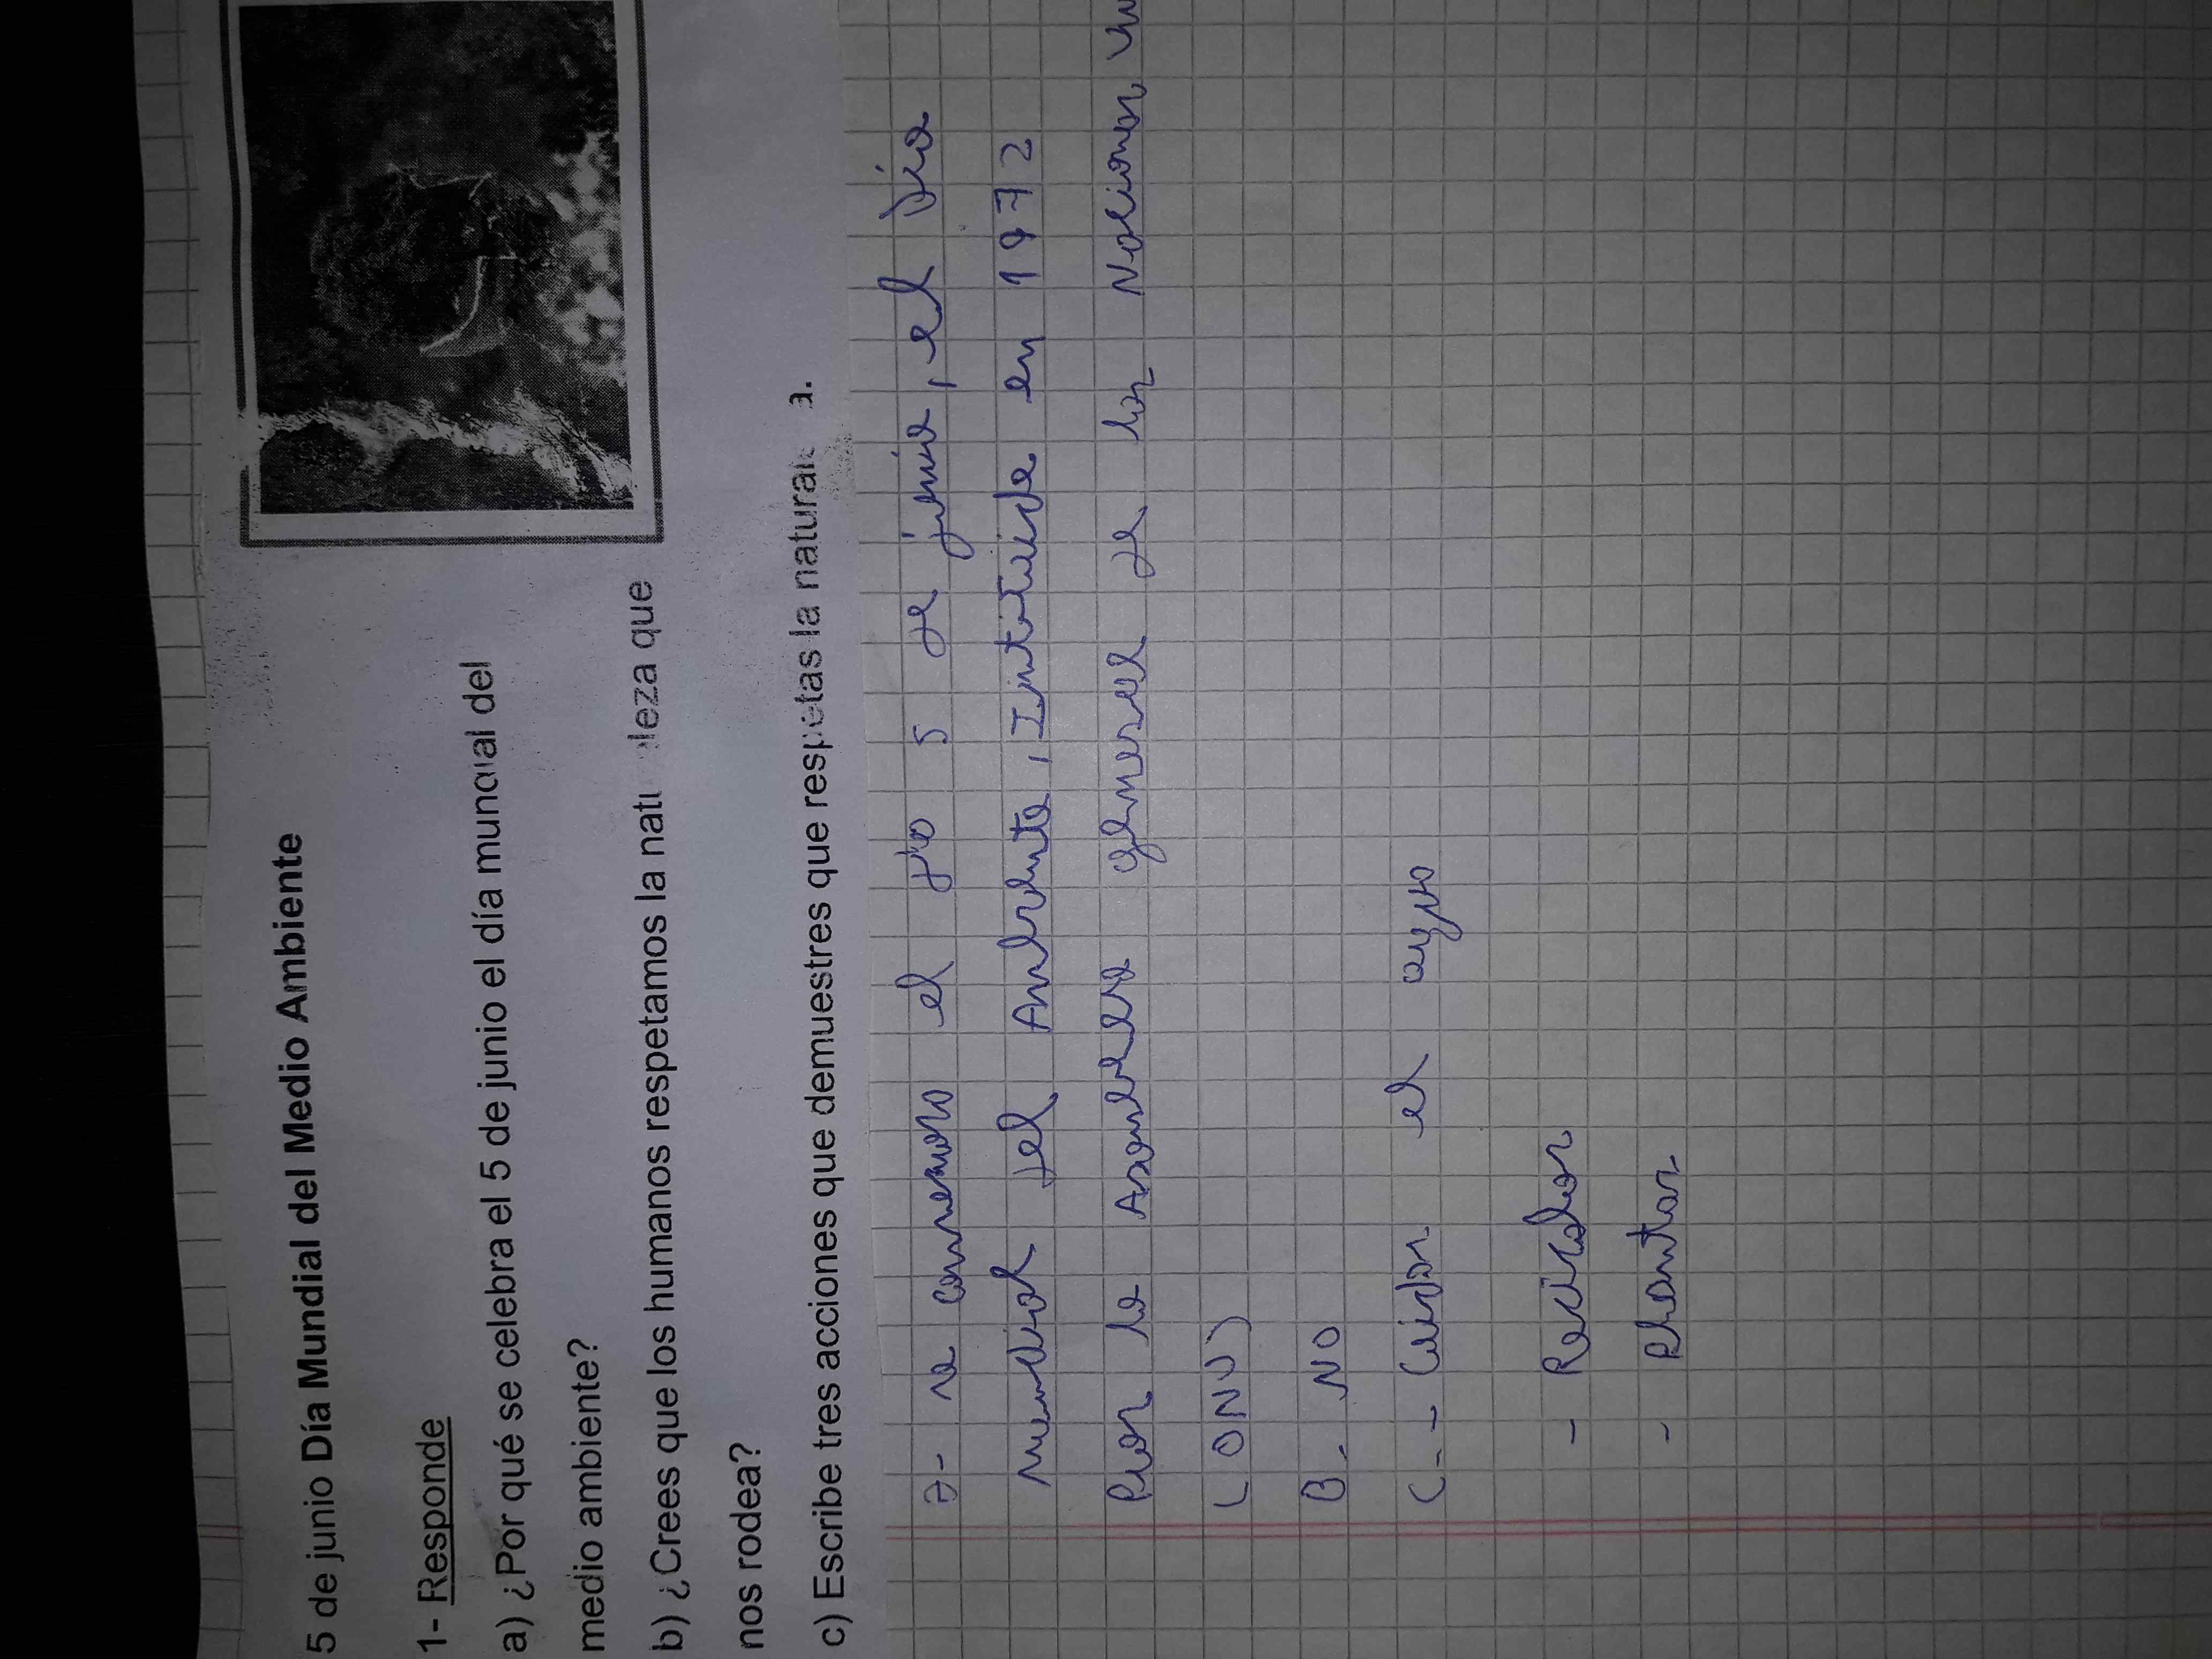 5 de junio Día Mundial del Medio Ambiente
1- Responde
a) ¿Por qué se celebra el 5 de junio el día mundial del
medio ambiente?
b) ¿Crees que los humanos respetamos la natu leza que
nos rodea?
c) Escribe tres acciones que demuestres que respetas la natural a.
a- se conmemora el día 5 de junio, el Día
mundial del Ambiente, Instituida en 1972
Por la Asamblea general de las Naciones
(ONU)
B- NO
C- - Cuidar el agua
- Reciclar
- Plantar